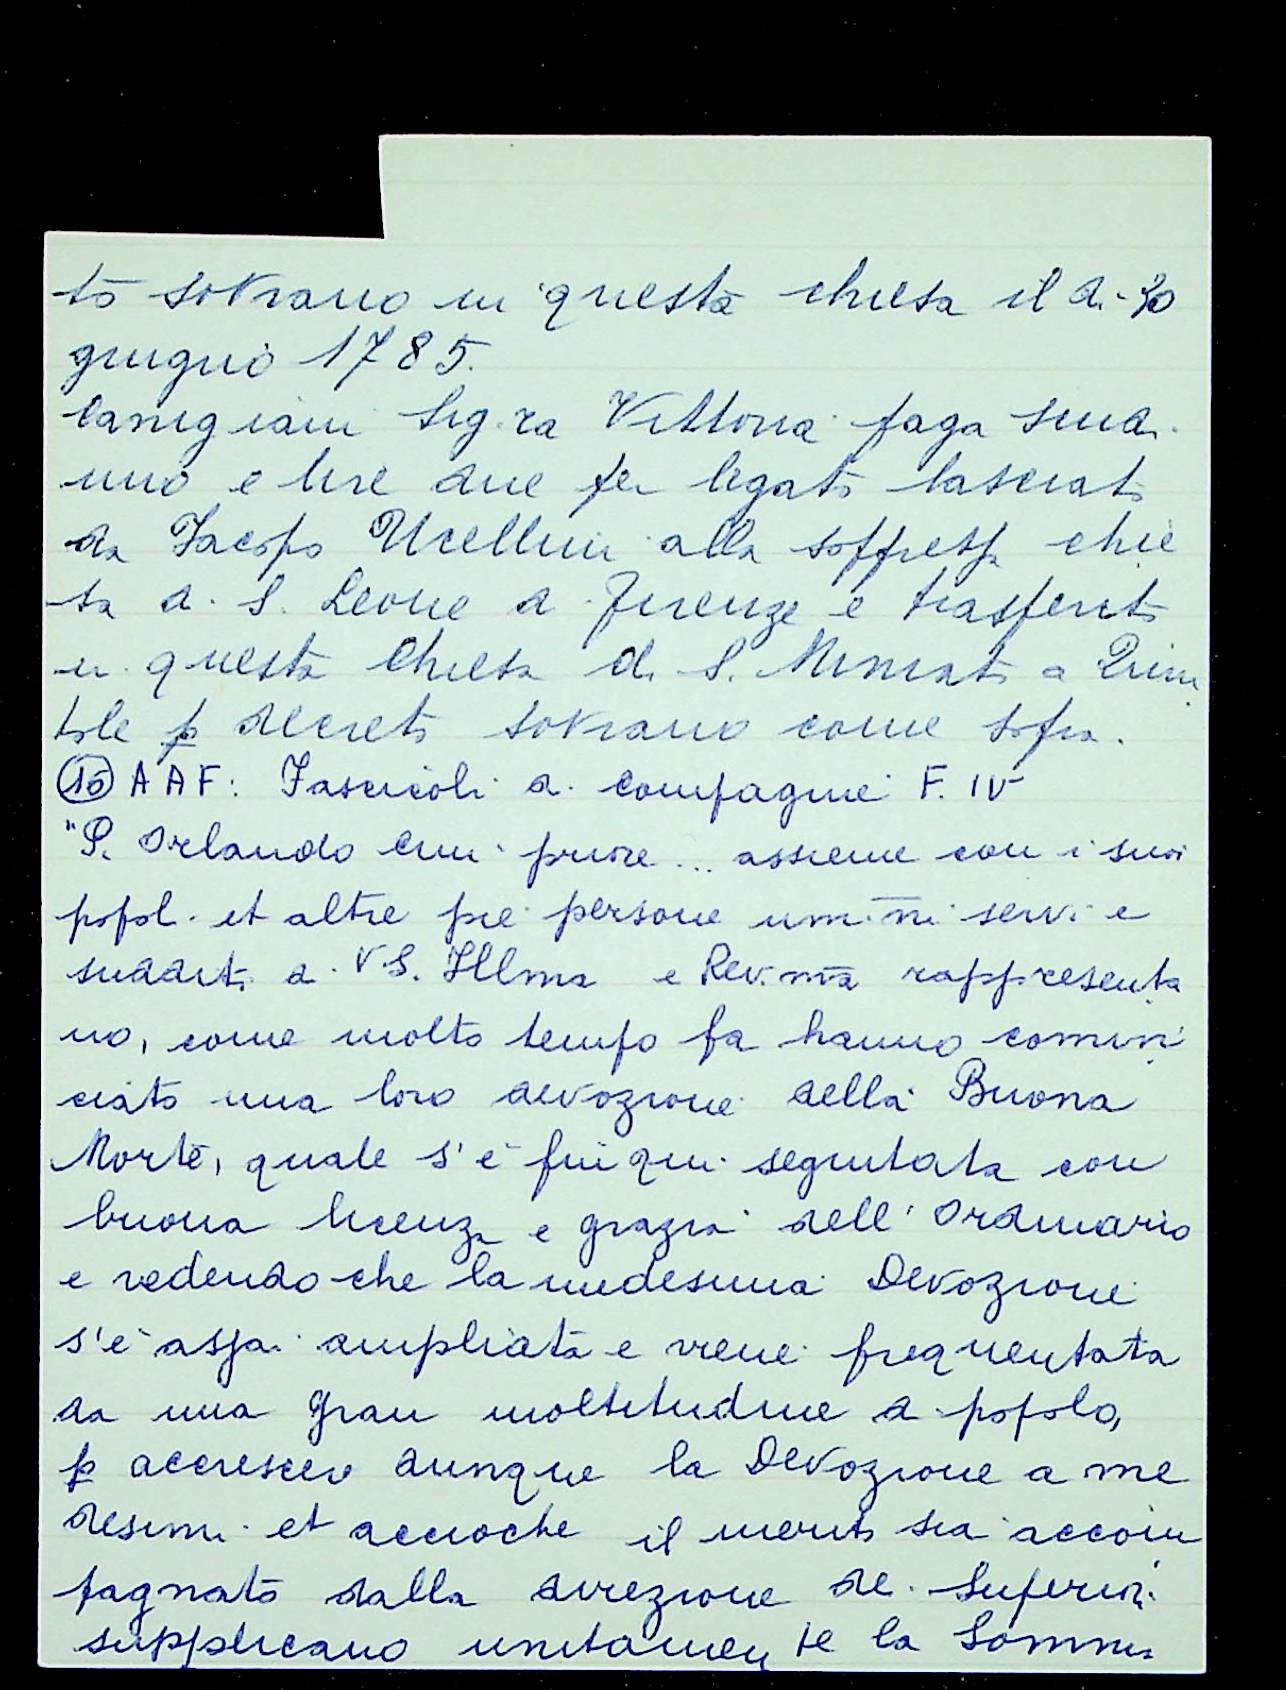 to sovrano in questa chiesa il dì 30
giugno 1785.
Canigiani Sig.ra Vittoria paga scudi
uno e lire due per legato lasciato
da Jacopo Ucellini alla soppressa chie
sa di S. Leone di Firenze e trasferito
in questa Chiesa di S. Miniato a Quin
tole p decreto sovrano come sopra.
(15) AAF: Fascicoli di compagnie F. IV
"P. Orlando priore... assieme con i suoi
popoli et altre pie persone um.mi servi e
sudditi di V.S. Ill.ma e Rev.ma rappresenta
no, come molto tempo fa hanno comin
ciato una loro devozione della Buona
Morte, quale s'è fin qui seguitata con
buona licenza e grazia dell'Ordinario
e vedendo che la medesima Devozione
s'è assai ampliata e viene frequentata
da una gran moltitudine di popolo,
p accrescere dunque la Devozione a me
desimi et acciochè il merito sia accom
pagnato dalla direzione de Superiori
supplicano unitamente la Somma